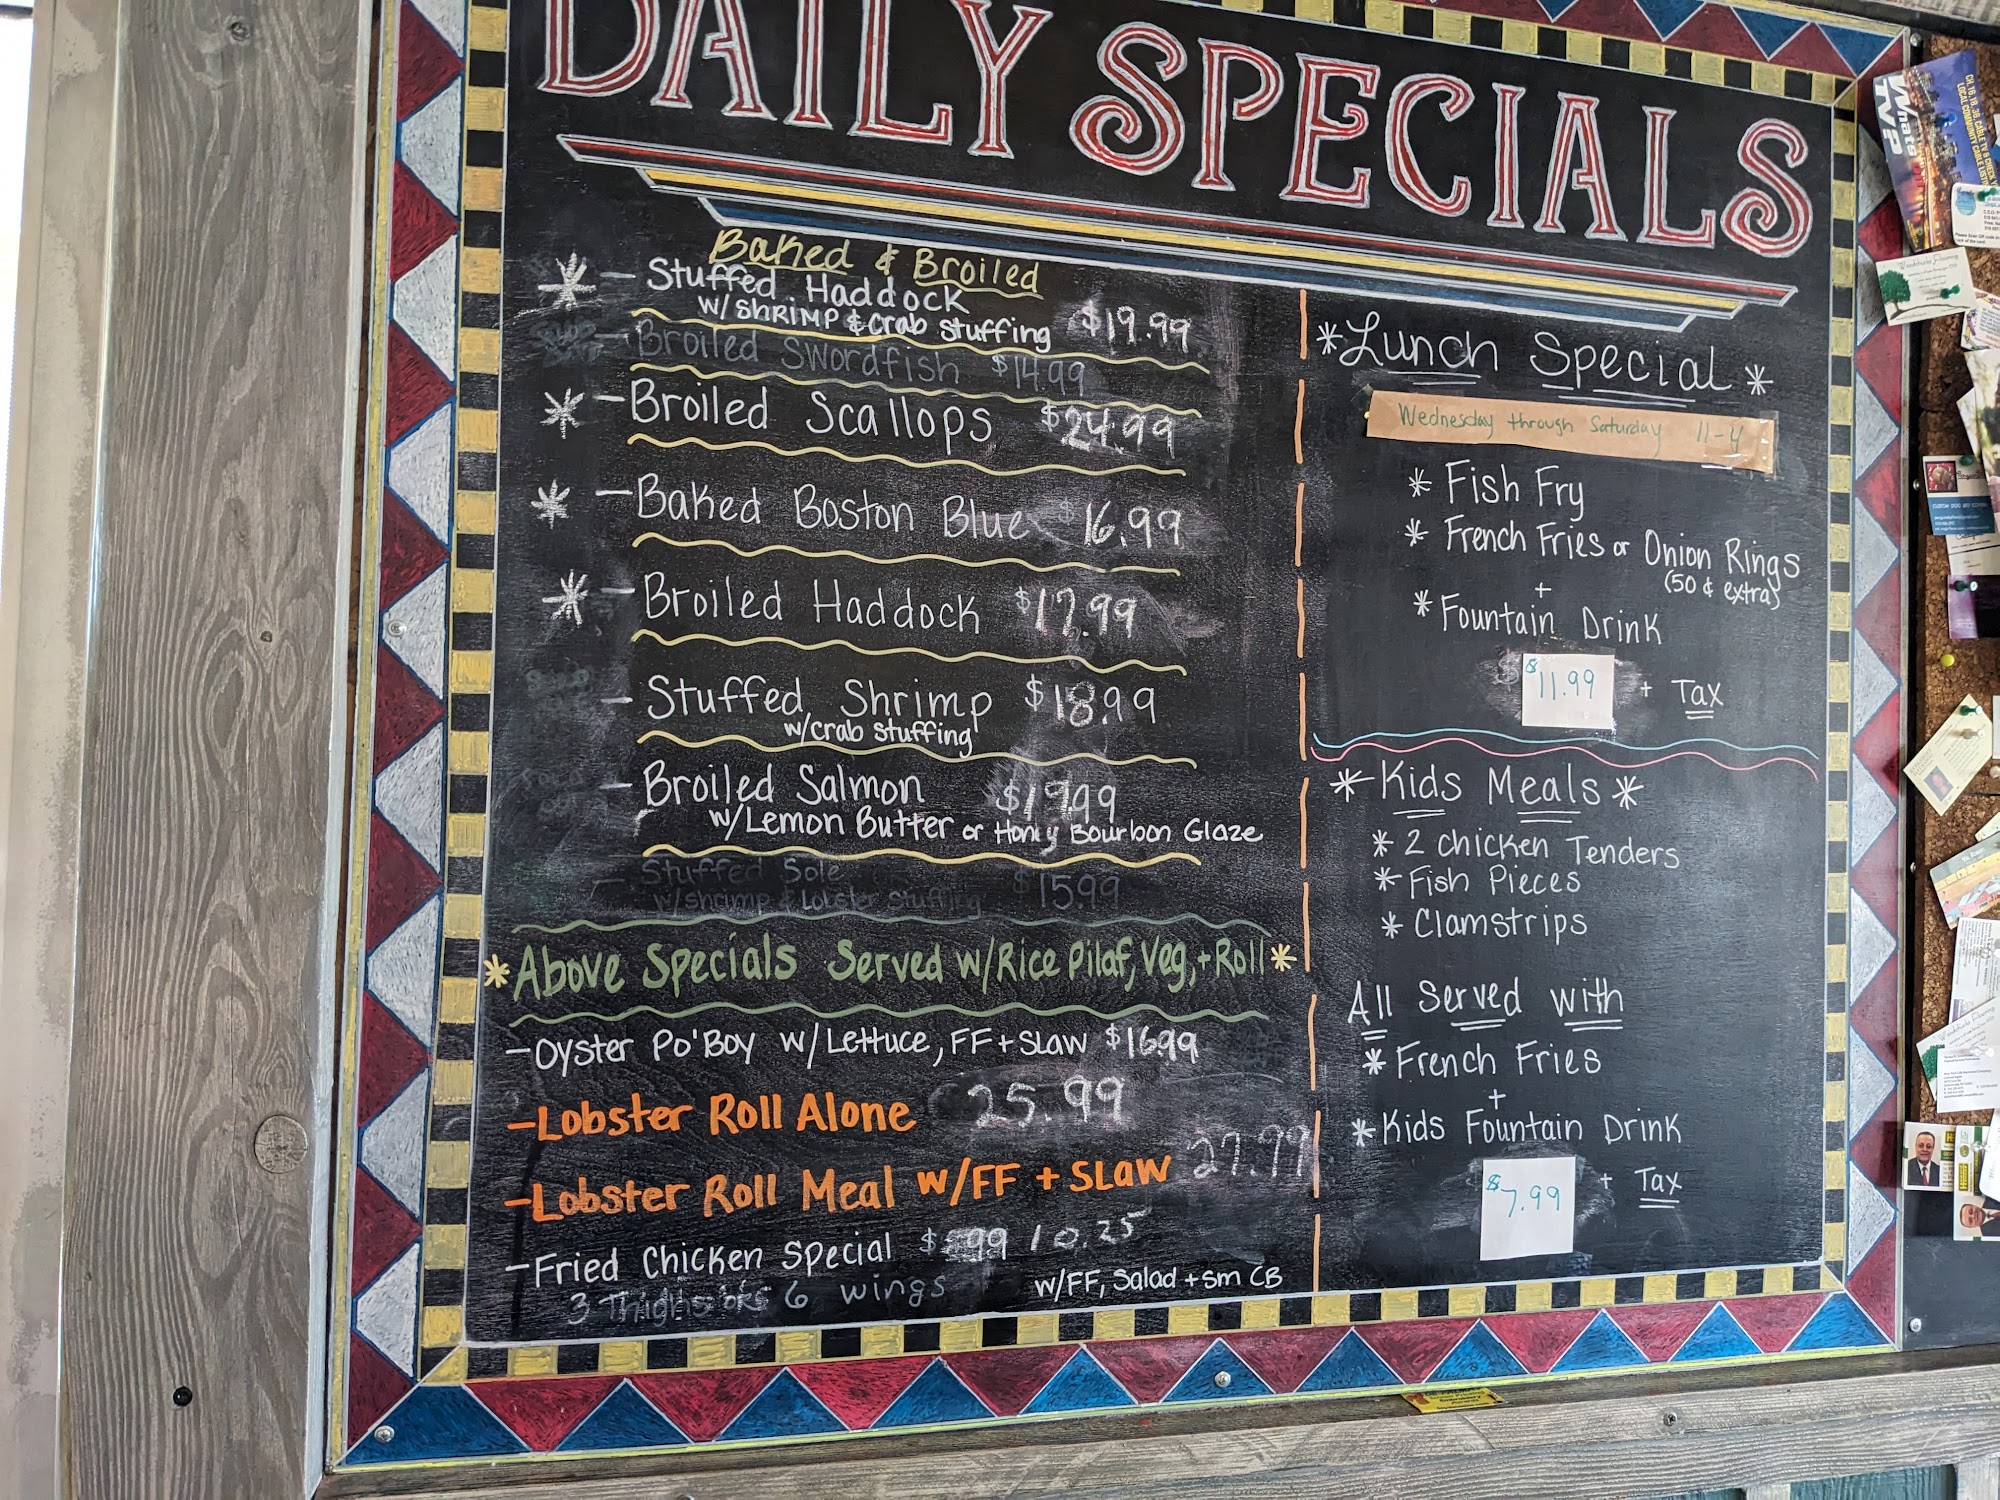 DAILY SPECIALS
Baked & Broiled
* - Stuffed Haddock
w/ shrimp & crab stuffing $19.99
- Broiled Swordfish $14.99
* - Broiled Scallops $24.99
* - Baked Boston Blue $16.99
* - Broiled Haddock $17.99
- Stuffed Shrimp $18.99
w/crab stuffing
- Broiled Salmon $19.99
w/Lemon Butter or Honey Bourbon Glaze
- Stuffed Sole $15.99
w/shrimp & Lobster Stuffing
*Above Specials Served w/Rice Pilaf, Veg, + Roll*
- Oyster Po'Boy w/Lettuce, FF + Slaw $16.99
- Lobster Roll Alone 25.99
- Lobster Roll Meal w/FF + Slaw 27.99
- Fried Chicken Special 10.25
3 Thighs 6 wings w/FF, Salad + sm CB
*Lunch Special*
Wednesday through Saturday 11-4
* Fish Fry
* French Fries or Onion Rings
(50¢ extra)
+
* Fountain Drink
$11.99 + Tax
*Kids Meals*
* 2 chicken Tenders
* Fish Pieces
* Clamstrips
All served with
* French Fries
+
* Kids Fountain Drink
$7.99 + Tax
Whats
TV?
CH. 16, 18, 36, CABLE TV
LOCAL COMMUNITY CABLE